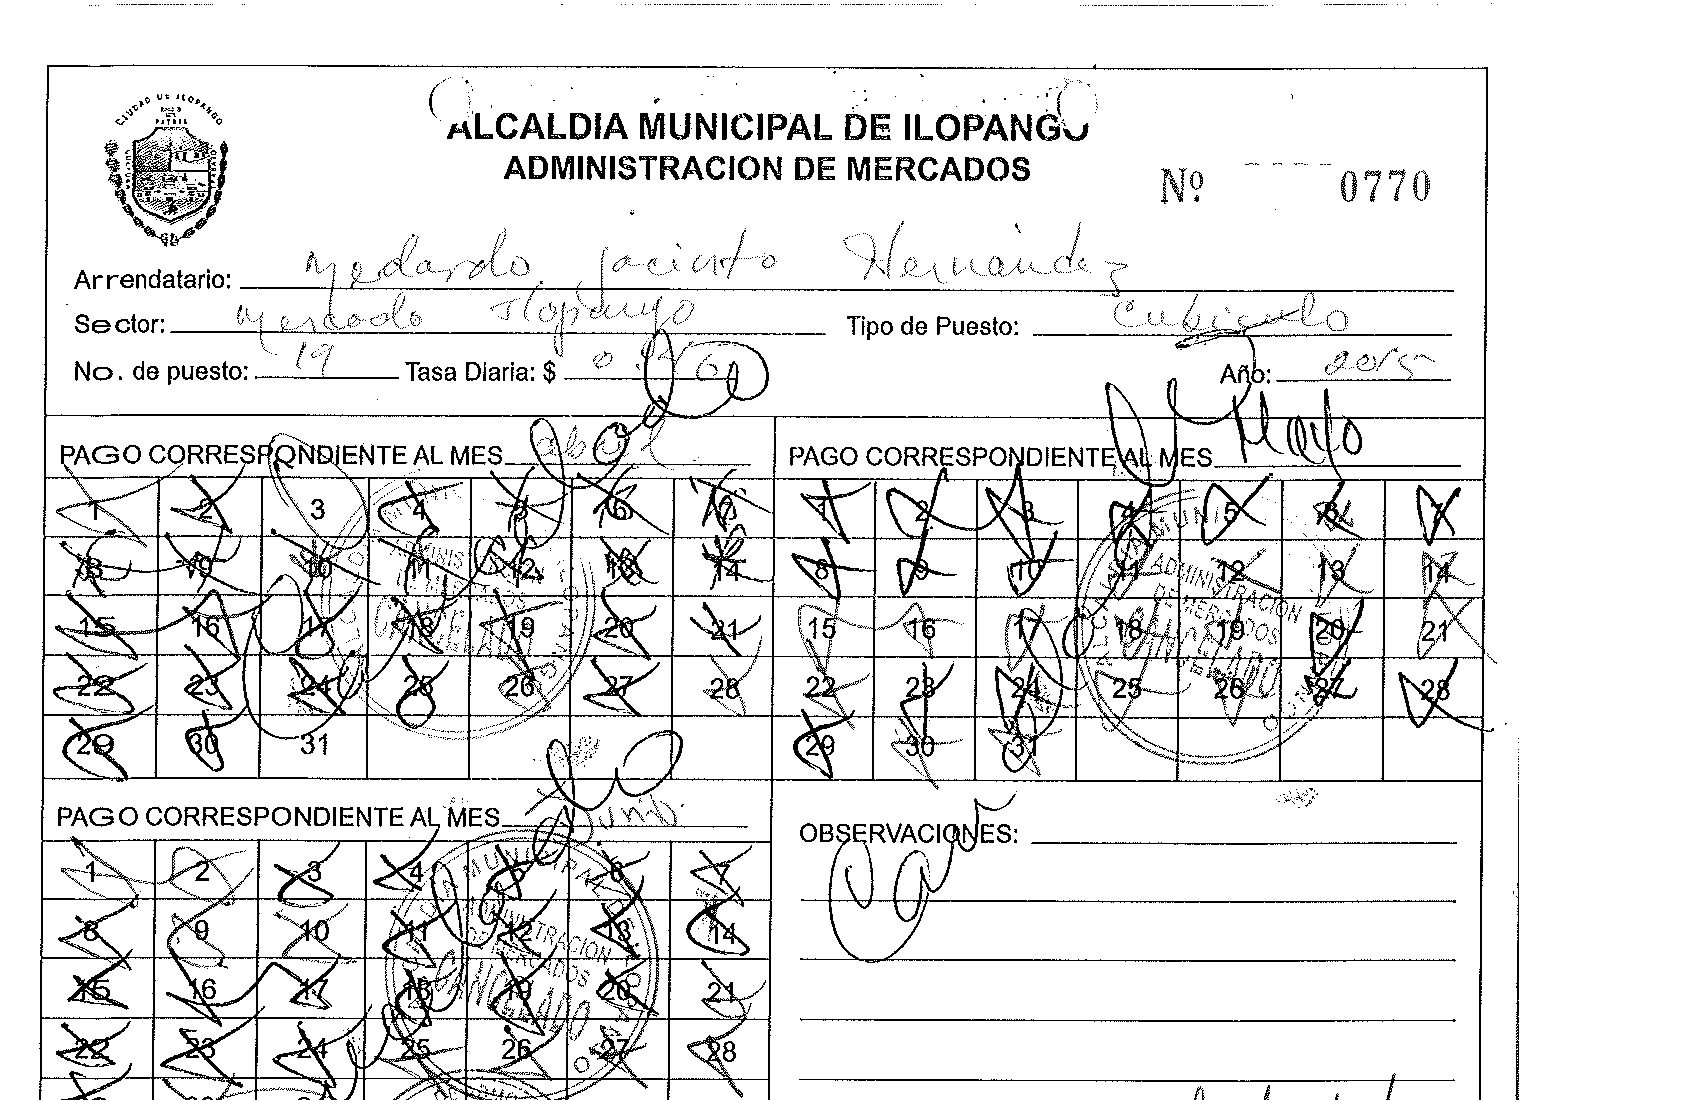 CIUDAD DE ILOPANGO
ALCALDIA MUNICIPAL DE ILOPANGO
ADMINISTRACION DE MERCADOS
Nº 0770
Arrendatario: Medardo Jacinto Hernández
Sector: Mercado Ilopango Tipo de Puesto: Cubiculo
No. de puesto: 19 Tasa Diaria: $ Año: 2015
PAGO CORRESPONDIENTE AL MES abril
1 2 3 4 5 6 7
8 9 10 11 12 13 14
15 16 17 18 19 20 21
22 23 24 25 26 27 28
29 30 31
PAGO CORRESPONDIENTE AL MES Mayo
1 2 3 4 5 6 7
8 9 10 11 12 13 14
15 16 17 18 19 20 21
22 23 24 25 26 27 28
29 30 31
ADMINISTRACION
DE MERCADOS
CANCELADO
PAGO CORRESPONDIENTE AL MES Junio
1 2 3 4 5 6 7
8 9 10 11 12 13 14
15 16 17 18 19 20 21
22 23 24 25 26 27 28
MUNICIPAL
ADMINISTRACION
DE MERCADOS
CANCELADO
OBSERVACIONES: